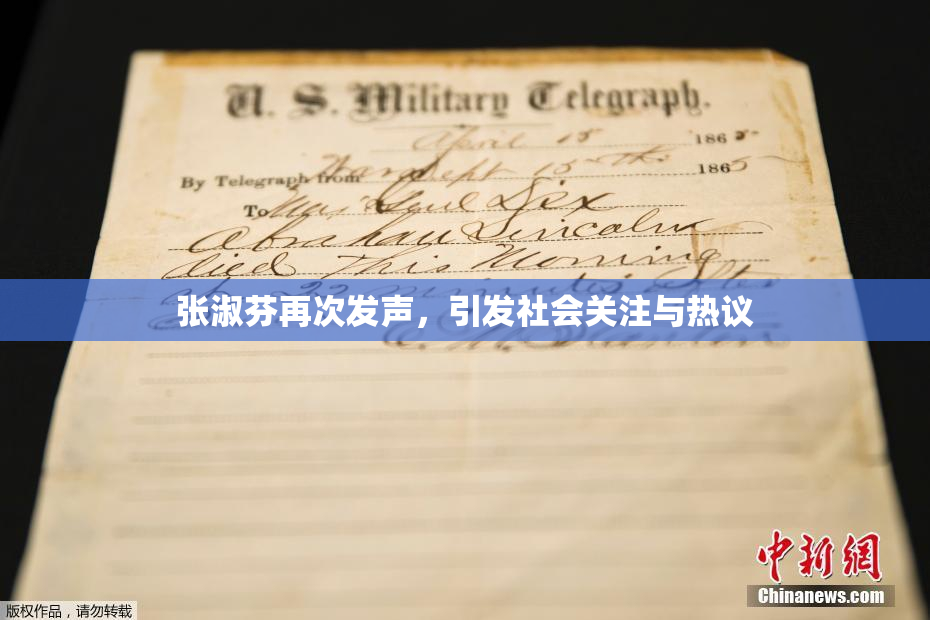 U. S. Military Telegraph.
April 15 1865
By Telegraph from War Dept 15th 1865
To Maj Genl Dix
Abraham Lincoln
died This Morning
at 22 minutes after
张淑芬再次发声，引发社会关注与热议
E. M. Stanton
中新網
Chinanews.com
版权作品，请勿转载